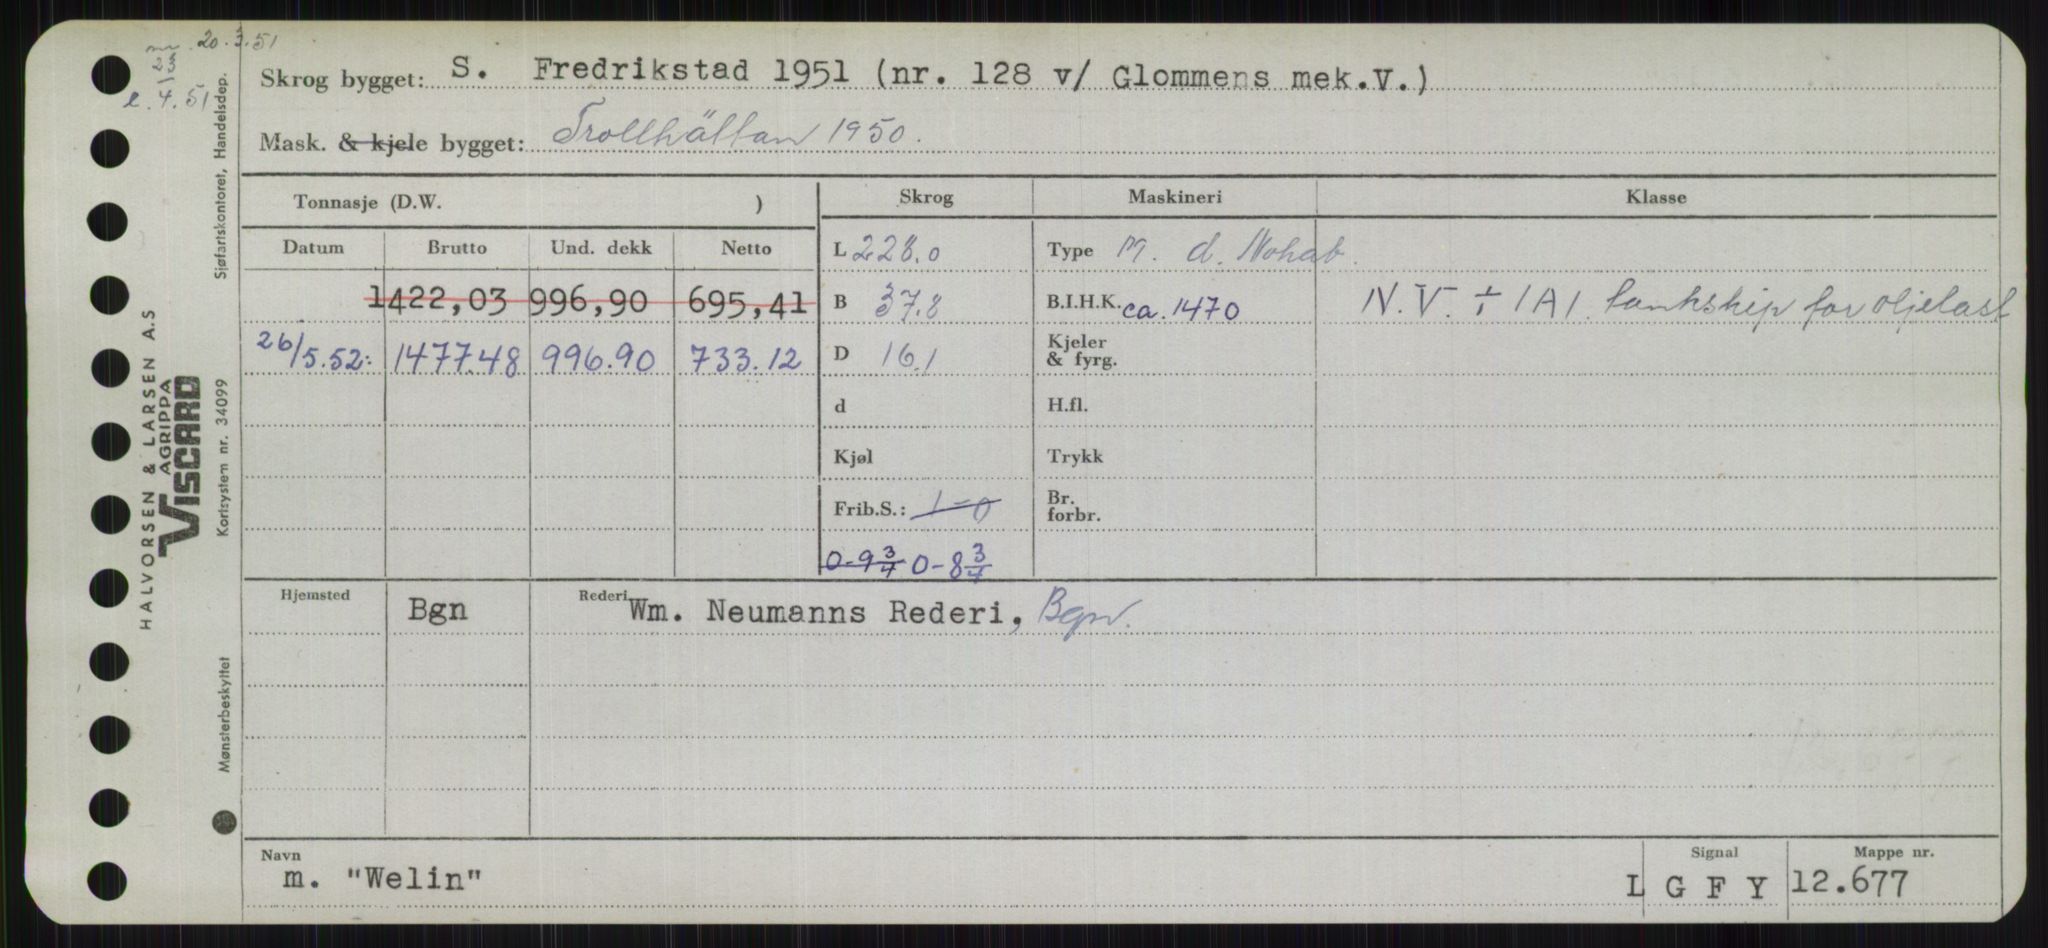 20.3.51
e. 4. 51
Skrog bygget: S. Fredrikstad 1951 (nr. 128 v/ Glommens mek.V.)
Mask. & kjele bygget: Trollhättan 1950.
Tonnasje (D.W. ) Skrog Maskineri Klasse
Datum Brutto Und. dekk Netto L 228.0 Type M. d. Nohab.
1422,03 996,90 695,41 B 37.8 B.I.H.K. ca. 1470 N.V. + 1A1. tankskip for oljelast
26/5.52: 1477.48 996.90 733.12 D 16.1 Kjeler & fyrg.
d H.fl.
Kjøl Trykk
Frib.S.: 1-0 Br. forbr.
0-9 3/4 0-8 3/4
Hjemsted Bgn Rederi Wm. Neumanns Rederi, Bgn.
Navn Signal Mappe nr.
m. "Welin" L G F Y 12.677
HALVORSEN & LARSEN A.S
AGRIPPA
VISCARD
Mønsterbeskyttet Kortsystem nr. 34099 Sjøfartskontoret, Handelsdep.